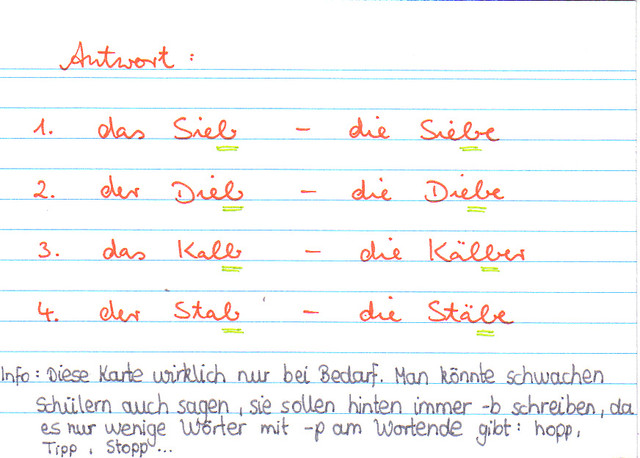 Antwort :
1. das Sieb - die Siebe
2. der Dieb - die Diebe
3. das Kalb - die Kälber
4. der Stab - die Stäbe
Info: Diese Karte wirklich nur bei Bedarf. Man könnte schwachen
Schülern auch sagen, sie sollen hinten immer -b schreiben, da
es nur wenige Wörter mit -p am Wortende gibt: hopp,
Tipp, Stopp...